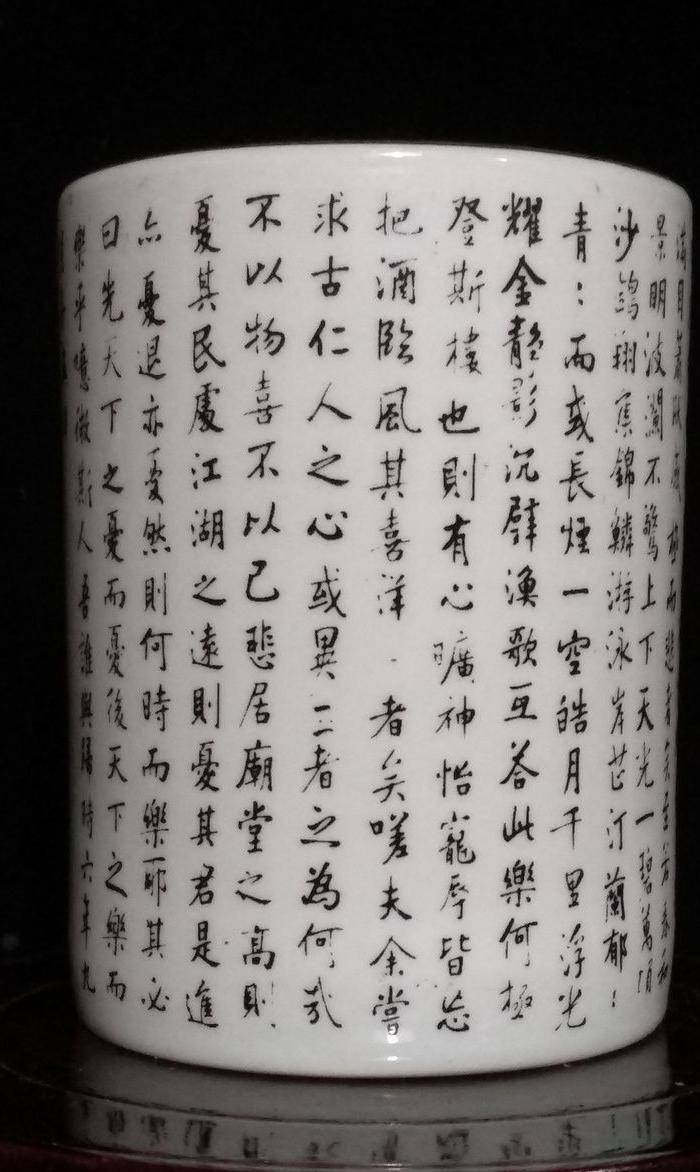 滿目蕭然感極而悲者矣至若春和
景明波瀾不驚上下天光一碧萬頃
沙鷗翔集錦鱗游泳岸芷汀蘭郁〻
青〻而或長煙一空皓月千里浮光
耀金靜影沉壁漁歌互荅此樂何極
登斯樓也則有心曠神怡寵辱皆忘
把酒臨風其喜洋〻者矣嗟夫余嘗
求古仁人之心或異二者之為何哉
不以物喜不以己悲居廟堂之高則
憂其民處江湖之遠則憂其君是進
亦憂退亦憂然則何時而樂耶其必
曰先天下之憂而憂後天下之樂而
樂乎噫微斯人吾誰與歸時六年九